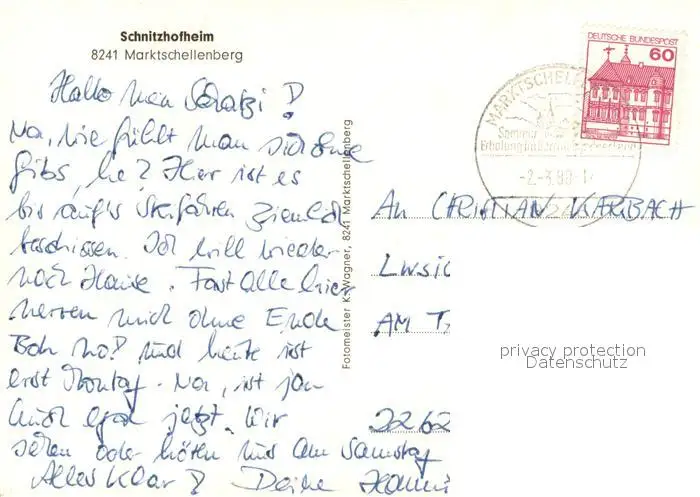 Schnitzhofheim
8241 Marktschellenberg
Hallo mein Schatzi!
Na, wie fühlt man sich ohne
Gibs, he? Hier ist es
bis auf's Skifahren ziemlich
beschissen. Ich will wieder
nach Hause. Fast alle hier
nerven mich ohne Ende
Boh no! und heute ist
erst Montag. Na, ist ja
auch egal jetzt. Wir
sehen oder hören uns am Samstag
Alles Klar? Deine
Fotomeister K. Wagner, 8241 Marktschellenberg
DEUTSCHE BUNDESPOST
60
MARKTSCHELLEN
Erholung
-2.-3.80-1
An CHRISTIAN KARBACH
Lwsic
AM T
2262
privacy protection
Datenschutz